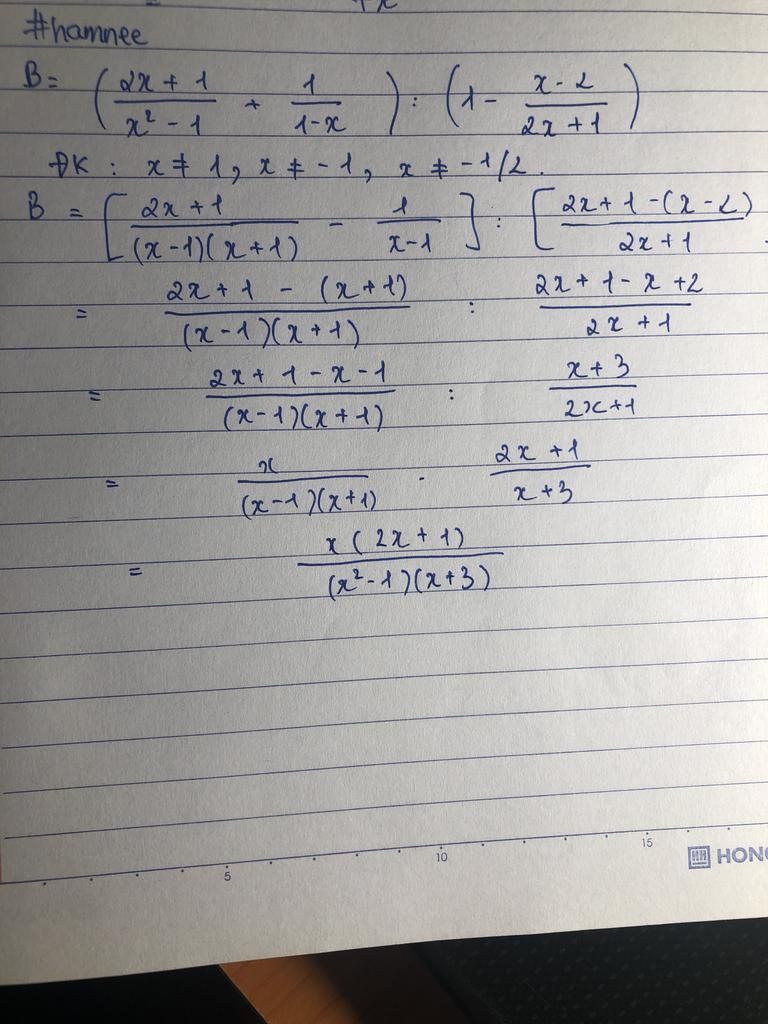 #hamnee
B = ( (2x + 1)/(x² - 1) + 1/(1-x) ) : ( 1 - (x - 2)/(2x + 1) )
ĐK : x ≠ 1, x ≠ -1, x ≠ -1/2.
B = [ (2x + 1)/((x-1)(x+1)) - 1/(x-1) ] : [ (2x + 1 - (x - 2))/(2x + 1)
= (2x + 1 - (x+1))/((x-1)(x+1)) : (2x + 1 - x + 2)/(2x + 1)
= (2x + 1 - x - 1)/((x-1)(x+1)) : (x + 3)/(2x+1)
= x/((x-1)(x+1)) . (2x + 1)/(x+3)
= x(2x + 1)/((x²-1)(x+3))
5 10 15
HONG